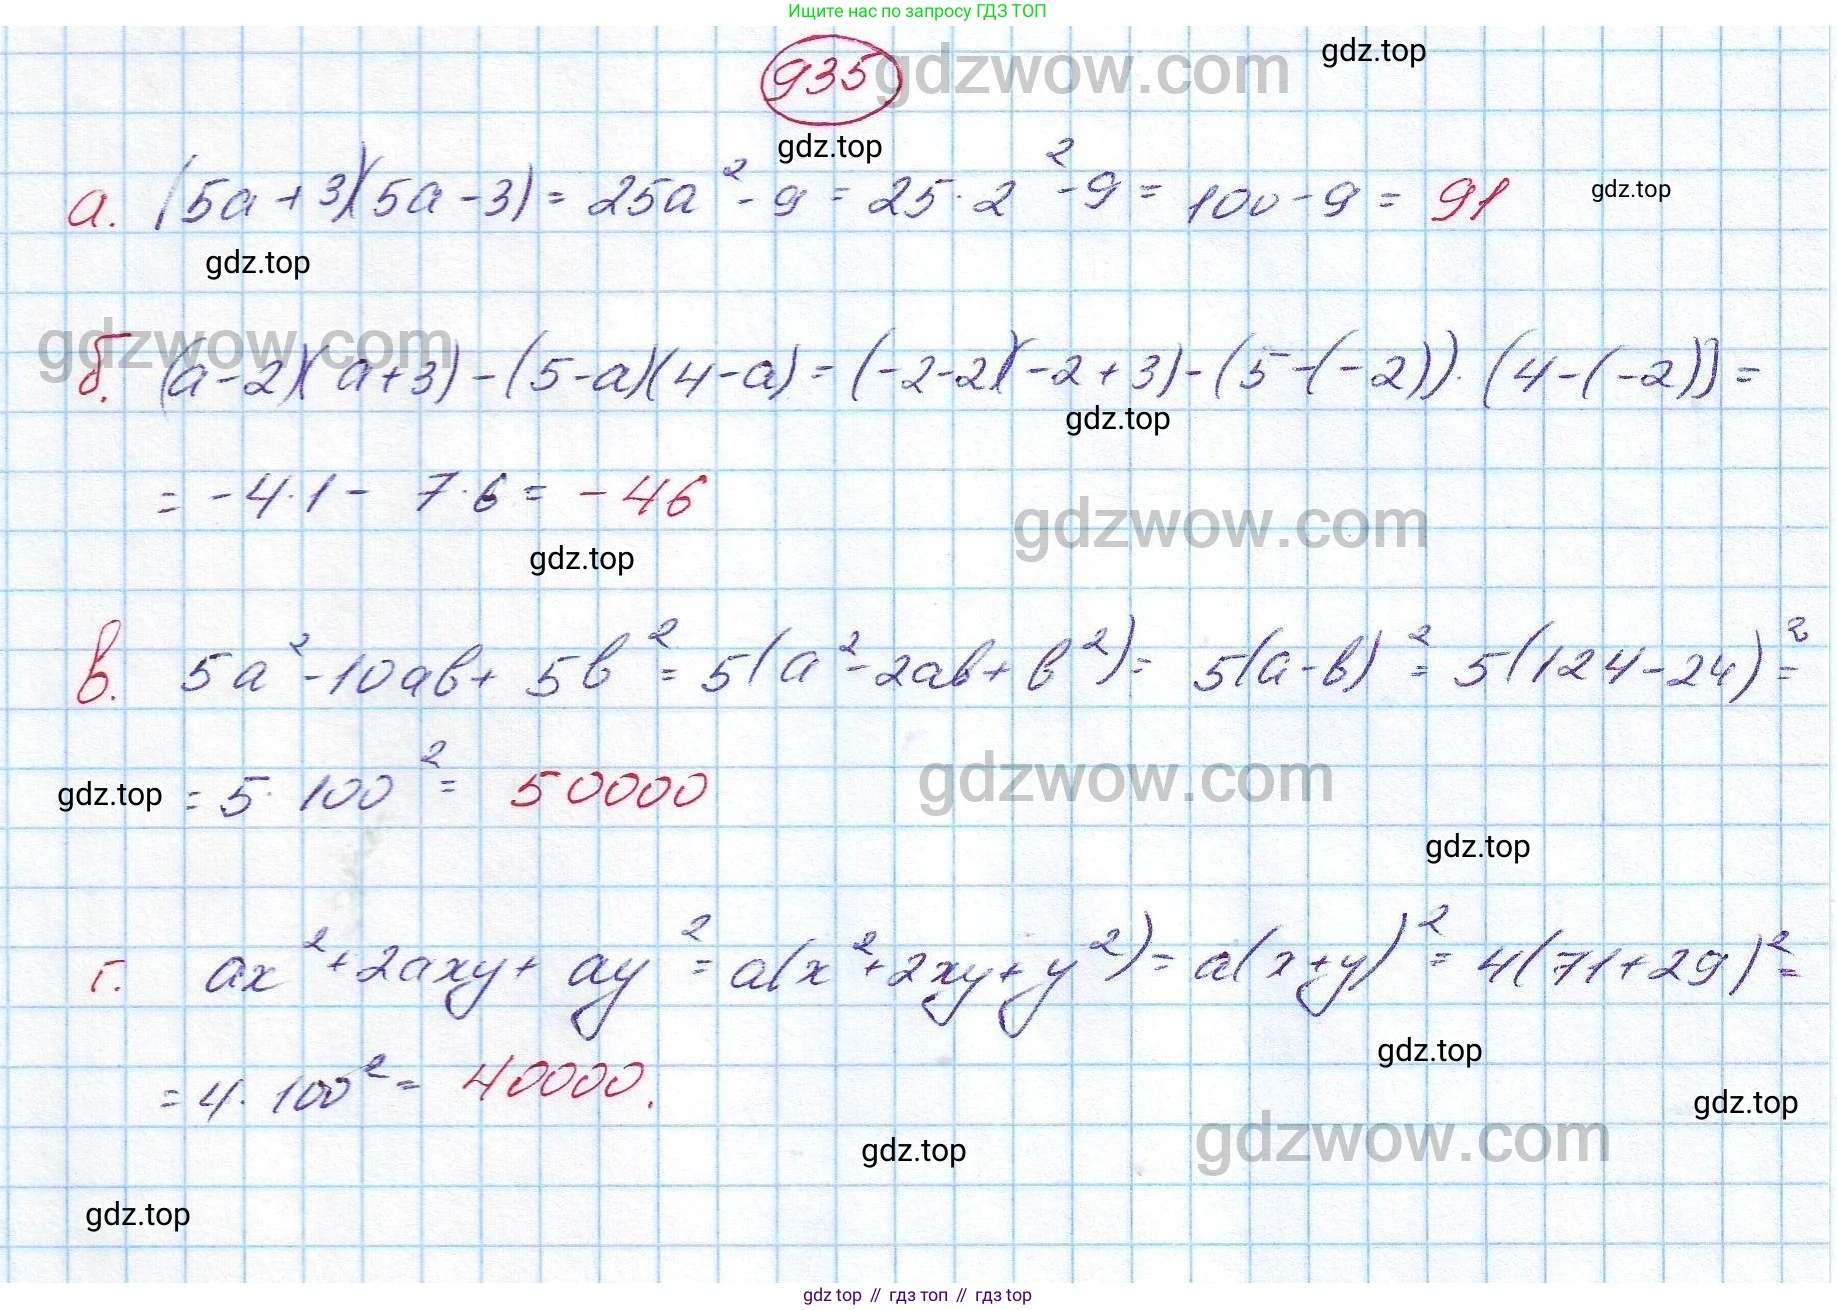 Ищите нас по запросу ГДЗ ТОП
935
gdzwow.com
gdz.top
gdz.top
а. (5a+3)(5a-3) = 25a² - 9 = 25·2² - 9 = 100 - 9 = 91
gdz.top
gdz.top
gdzwow.com
б. (a-2)(a+3) - (5-a)(4-a) = (-2-2)(-2+3) - (5-(-2))·(4-(-2)) =
gdz.top
= -4·1 - 7·6 = -46
gdzwow.com
gdz.top
в. 5a² - 10ab + 5b² = 5(a² - 2ab + b²) = 5(a-b)² = 5(124-24)² =
gdz.top
= 5·100² = 50000
gdzwow.com
gdz.top
г. ax² + 2axy + ay² = a(x² + 2xy + y²) = a(x+y)² = 4(71+29)² =
gdz.top
= 4·100² = 40000.
gdz.top
gdzwow.com
gdz.top
gdz.top
gdz top // гдз топ // гдз top